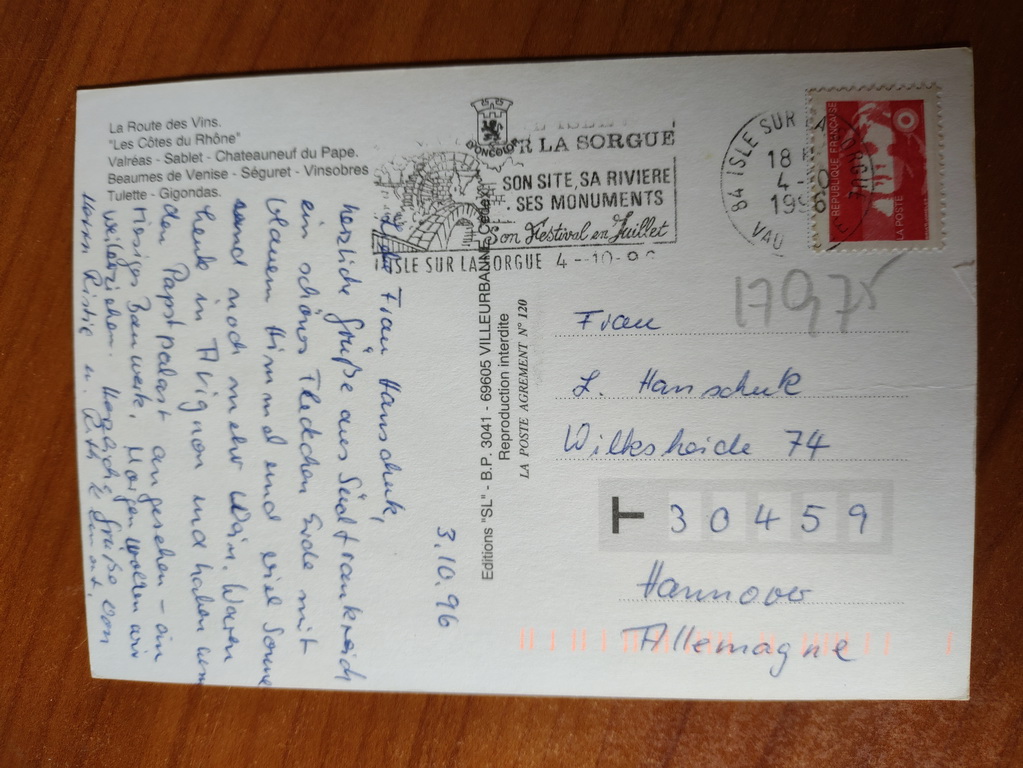 La Route des Vins.
"Les Côtes du Rhône"
Valréas - Sablet - Chateauneuf du Pape.
Beaumes de Venise - Séguret - Vinsobres
Tulette - Gigondas.
3.10.96
Liebe Frau Hanschuk,
herzliche Grüße aus Südfrankreich
ein schönes Fleckchen Erde mit
blauem Himmel und viel Sonne
und noch mehr Wein. Waren
heute in Avignon und haben uns
den Papstpalast angesehen - ein
riesiges Bauwerk. Morgen wollen wir
weiterziehen. Herzliche Grüße von
Editions "SL" - B.P. 3041 - 69605 VILLEURBANNE Cedex
Reproduction interdite
LA POSTE AGREMENT N° 120
R LA SORGUE
SON SITE, SA RIVIERE
SES MONUMENTS
Son Festival en Juillet
ISLE SUR LA SORGUE 4-10-9
84 ISLE SUR LA SORGUE
18
4
1996
VAU
RÉPUBLIQUE FRANÇAISE
LA POSTE
17975
Frau
L. Hanschuk
Wilksheide 74
T 30459
Hannover
Allemagne